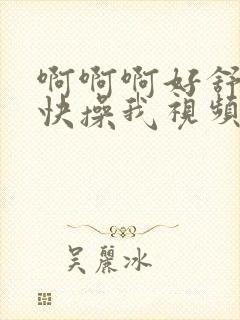 啊啊啊好舒
快操我視頻
吴麗冰